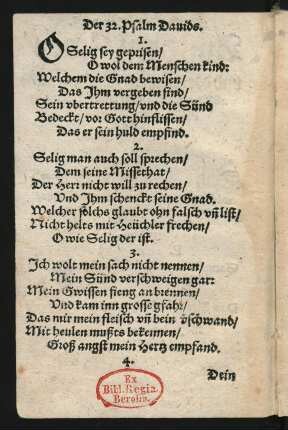 Der 32. Psalm Dauids.
1.
O Selig sey geprisen/
O wol dem Menschen kind:
Welchem die Gnad bewisen/
Das Ihm vergeben sind/
Sein vbertrettung/ vnd die Sünd
Bedeckt/ vor Gott hinflissen/
Das er sein huld empfind.
2.
Selig man auch soll sprechen/
Dem seine Missethat/
Der Herr nicht will zu rechen/
Vnd Ihm schenckt seine Gnad.
Welcher solchs glaubt ohn falsch vñ list/
Nicht helts mit Heüchler frechen/
O wie Selig der ist.
3.
Ich wolt mein sach nicht nennen/
Mein Sünd verschweigen gar:
Mein Gwissen fieng an brennen/
Vnd kam inn grosse gfahr/
Das mir mein fleisch vñ bein v̈schwand/
Mit heulen mußts bekennen/
Groß angst mein Hertz empfand.
4.
Dein
Ex
Bibl. Regia
Berolin.